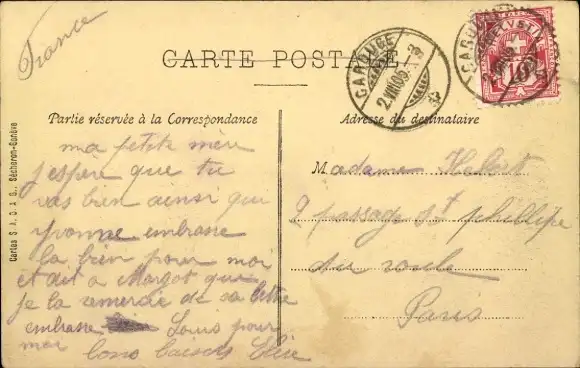 France
CARTE POSTALE
CAROUGE
2.VIII.06
HELVETIA
10
Cartes S.A.D.A.G. Sécheron-Genève
Partie réservée à la Correspondance
ma petite mère
j'espère que tu
vas bien ainsi que
Yvonne embrasse
la bien pour moi
et dit a Margot que
je la remercie de sa lettre
embrasse Louis pour
moi bons baisers
Adresse du destinataire
Madame
9 passage St phillipe
du roule
Paris